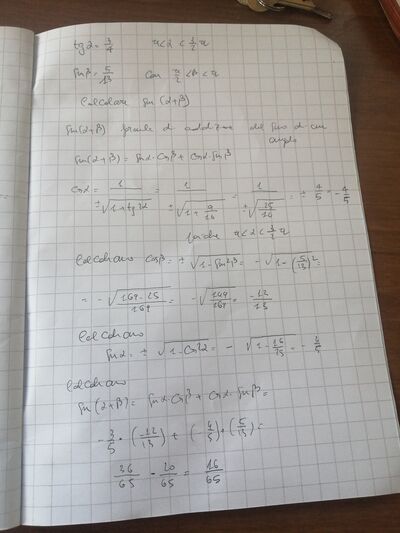 tg α = 3/4    π < α < 3/2 π
sin β = 5/13    con π/2 < β < π
Calcolare sin(α+β)
sin(α+β) formula di addizione del seno di un
angolo
sin(α+β) = sinα·cosβ + cosα·sinβ
cosα = 1/±√(1+tg²α) = 1/±√(1+9/16) = 1/±√(25/16) = ± 4/5 = - 4/5
perché π<α<3/2 π
Calcoliamo cosβ = ± √(1-sin²β) = -√(1-(5/13)²) =
= -√((169-25)/169) = -√(144/169) = -12/13
Calcoliamo
sinα = ± √(1-cos²α) = - √(1-16/25) = - 3/5
Calcoliamo
sin(α+β) = sinα·cosβ + cosα·sinβ =
-3/5 · (-12/13) + (-4/5)·(5/13) =
36/65 - 20/65 = 16/65